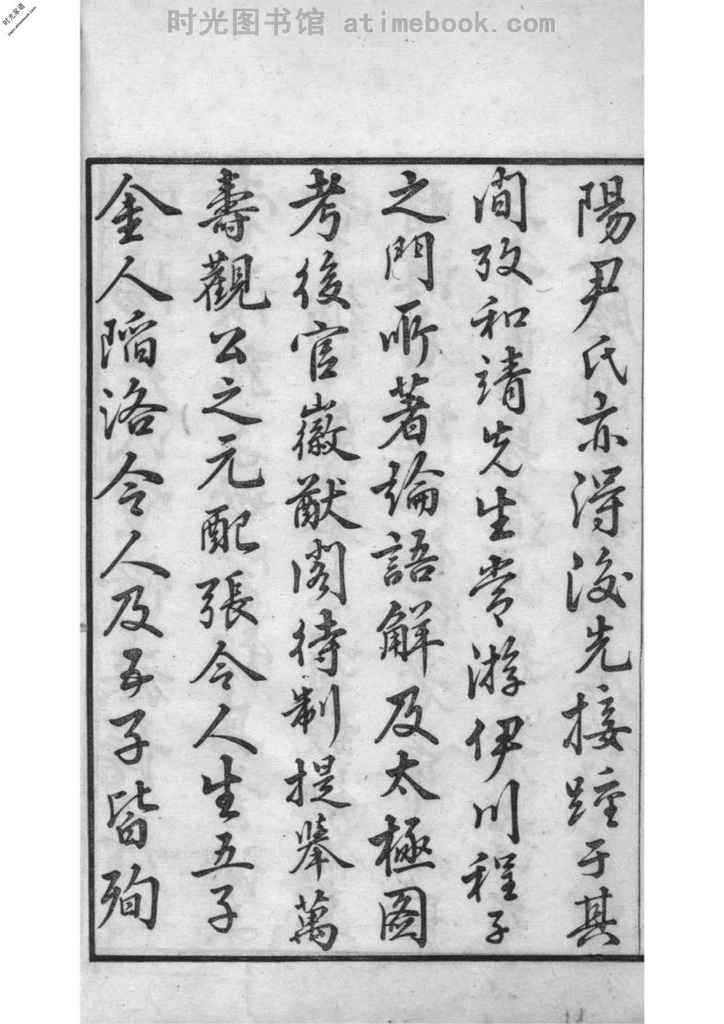 时光图书馆 atimebook.com
陽尹氏亦得後先接踵于其
间攷和靖先生嘗游伊川程子
之門所著論語解及太極圖
考後官徽猷閣待制提舉萬
壽觀公之元配張令人生五子
金人陷洛令人及五子皆殉